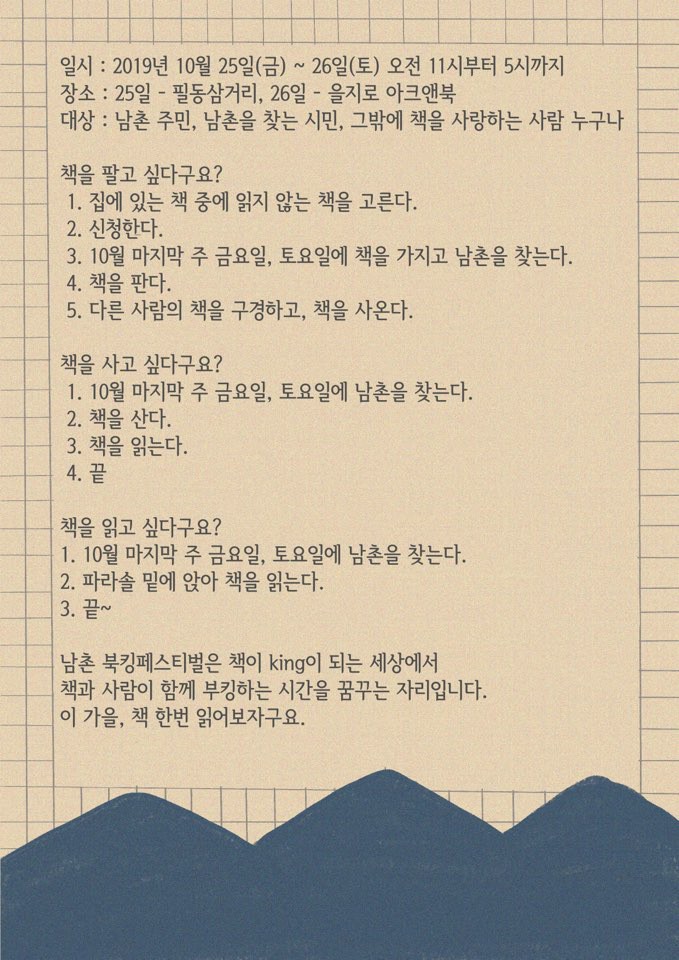 일시 : 2019년 10월 25일(금) ~ 26일(토) 오전 11시부터 5시까지
장소 : 25일 - 필동삼거리, 26일 - 을지로 아크앤북
대상 : 남촌 주민, 남촌을 찾는 시민, 그밖에 책을 사랑하는 사람 누구나
책을 팔고 싶다구요?
1. 집에 있는 책 중에 읽지 않는 책을 고른다.
2. 신청한다.
3. 10월 마지막 주 금요일, 토요일에 책을 가지고 남촌을 찾는다.
4. 책을 판다.
5. 다른 사람의 책을 구경하고, 책을 사온다.
책을 사고 싶다구요?
1. 10월 마지막 주 금요일, 토요일에 남촌을 찾는다.
2. 책을 산다.
3. 책을 읽는다.
4. 끝
책을 읽고 싶다구요?
1. 10월 마지막 주 금요일, 토요일에 남촌을 찾는다.
2. 파라솔 밑에 앉아 책을 읽는다.
3. 끝~
남촌 북킹페스티벌은 책이 king이 되는 세상에서
책과 사람이 함께 부킹하는 시간을 꿈꾸는 자리입니다.
이 가을, 책 한번 읽어보자구요.